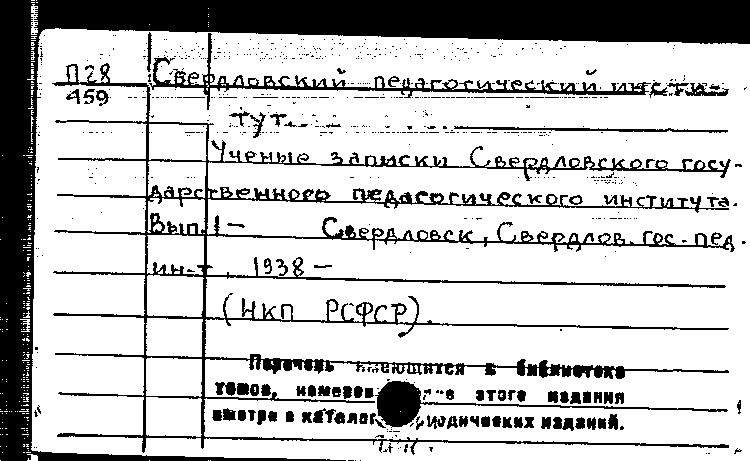 П28 Свердловский педагогический инсти-
459
тут.
Ученые записки Свердловского госу-
дарственного педагогического института.
Вып. 1 – Свердловск, Свердлов. гос. пед.
ин-т, 1938 –
(НКП РСФСР).
Перечень имеющихся в библиотеке
томов, номеров этого издания
смотри в каталоге периодических изданий.